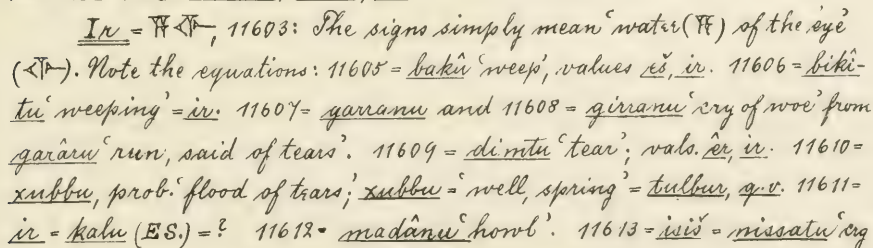 Ir = 𒀀𒅆, 11603: The signs simply mean 'water (𒀀) of the eye'
(𒅆). Note the equations: 11605 = bakû 'weep', values eš, ir. 11606 = bikî-
tu 'weeping' = ir. 11607 = garranu and 11608 = girranu 'cry of woe' from
garâru 'run, said of tears'. 11609 = dimtu 'tear'; vals. êr, ir. 11610 =
xubbu, prob. 'flood of tears; xubbu = 'well, spring' = tulbur, q.v. 11611 =
ir = kalu (ES.) = ? 11612 = madânu 'howl'. 11613 = isiš = nissatu 'cry